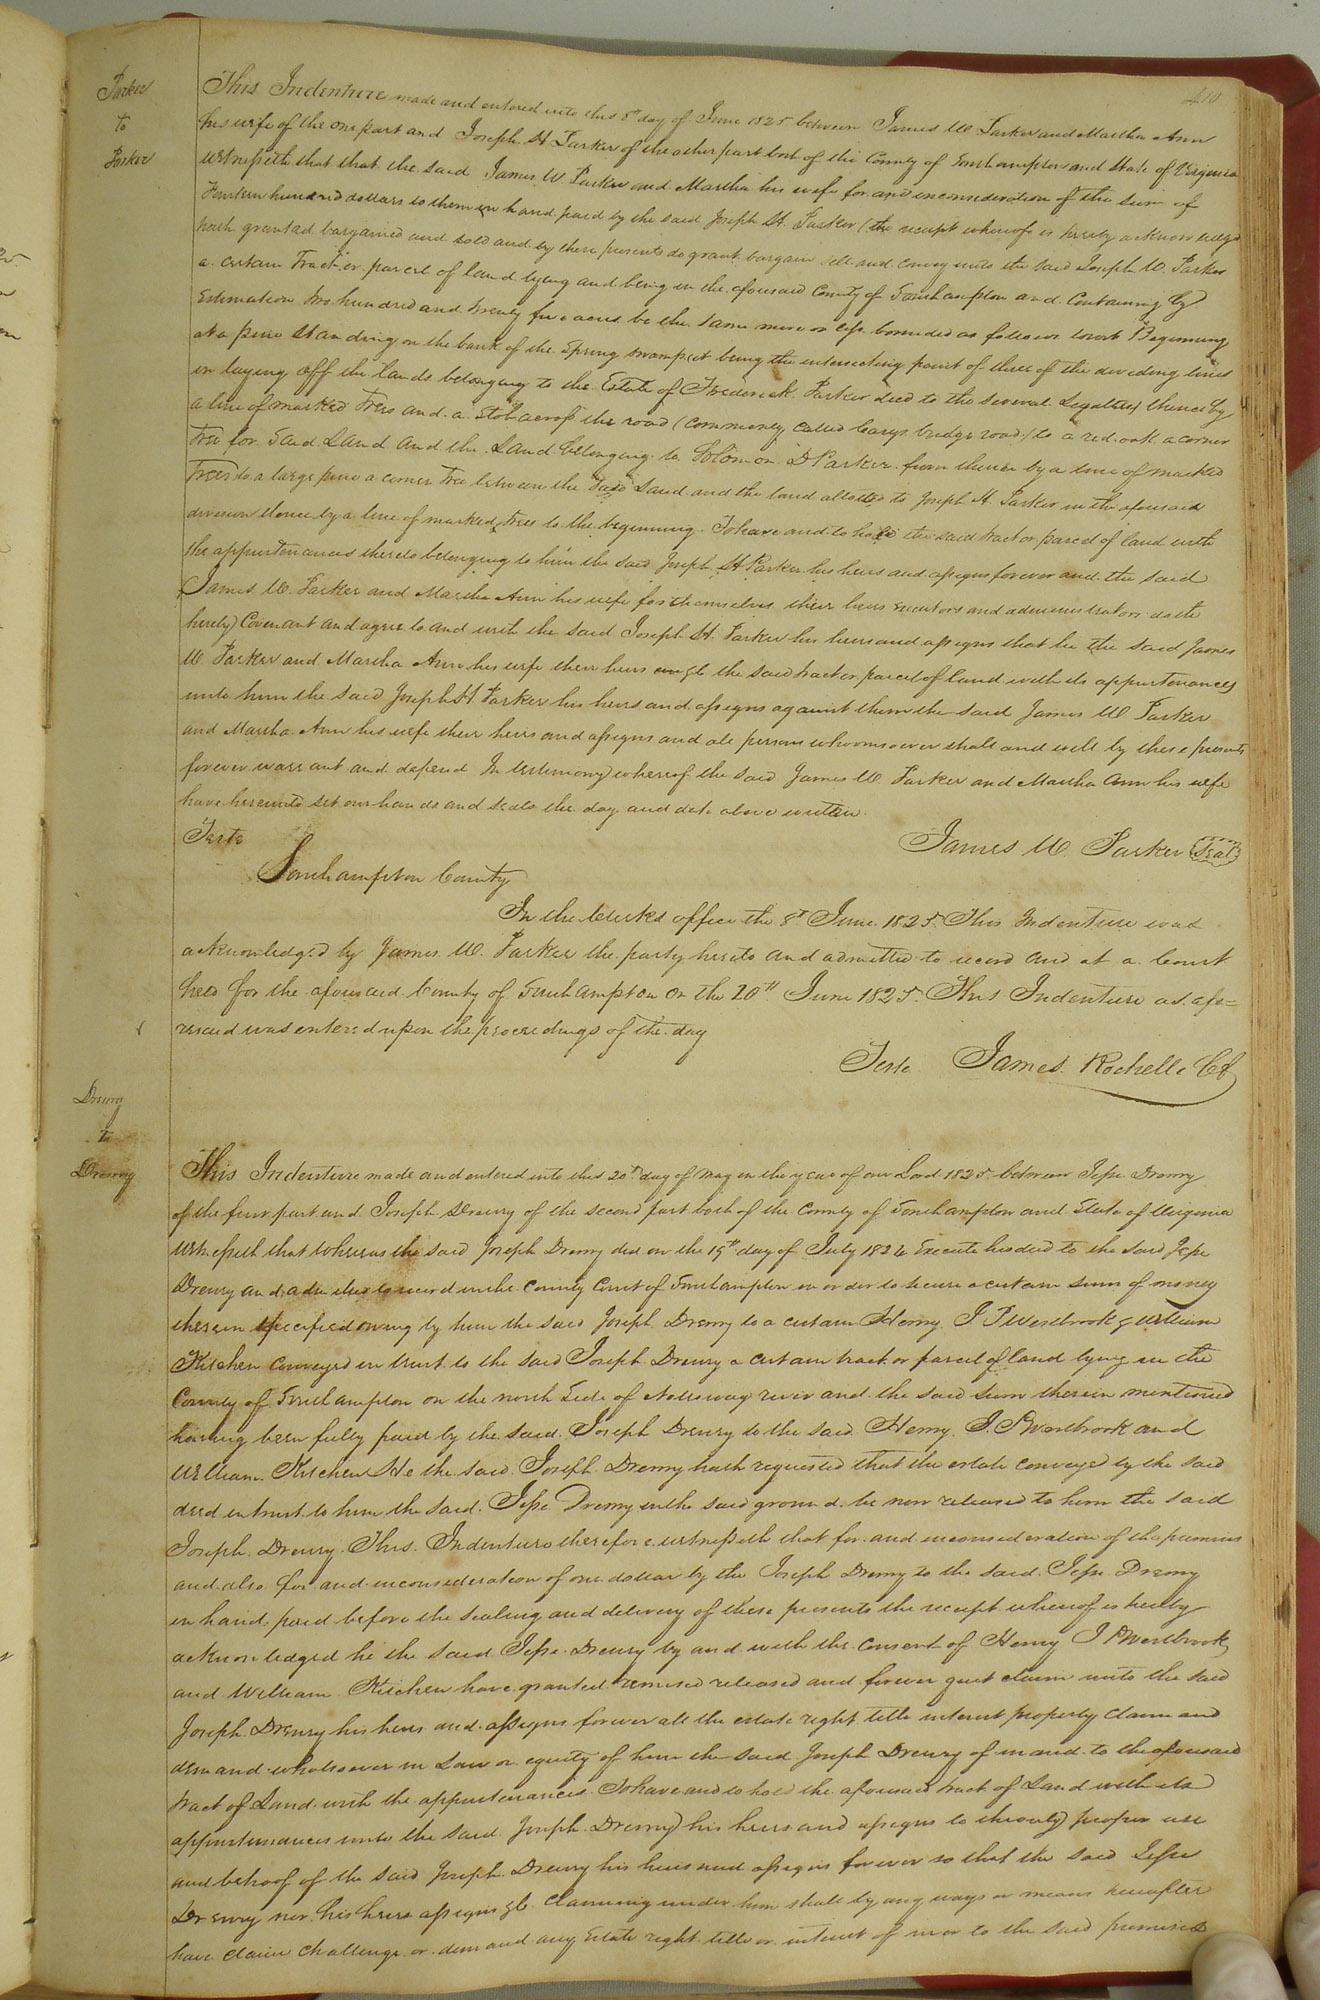 410
Parker
to
Parker
This Indenture made and entered into this 8th day of June 1825 between James W Parker and Martha Ann
his wife of the one part and Joseph H Parker of the other part both of the County of Southampton and State of Virginia
witnesseth that that the said James W Parker and Martha his wife for and inconsideration of the sum of
hundred dollars to them in hand paid by the said Joseph H. Parker (the receipt whereof is hereby acknowledged
hath granted bargained and sold and by these presents do grant bargain sell and convey unto the said Joseph W. Parker
a certain Tract or parcel of land lying and being in the aforesaid County of Southampton and Containing by
Estimation two hundred and twenty five acres be the same more or less bounded as follows towit Beginning
at a pine standing on the bank of the Spring swamp it being the intersecting point of three of the dividing lines
in laying off the lands belonging to the Estate of Frederick Parker decd to the several Legatees, thence by
a line of marked Trees and a Stob across the road (commonly called Carys bridge road) to a red oak a corner
Tree for said Land and the Land belonging to Solomon D Parker from thence by a line of marked
Trees to a large pine a corner Tree between the said Land and the land allotted to Joseph H Parker in the aforesaid
division thence by a line of marked trees to the beginning. To have and to hold the said tract or parcel of land with
the appurtenances thereto belonging to him the said Joseph H Parker his heirs and assigns forever and the said
James W. Parker and Martha Ann his wife for themselves their heirs executors and administrators doth
hereby Covenant and agree to and with the said Joseph H. Parker his heirs and assigns that he the said James
W. Parker and Martha Ann his wife their heirs &c the said tract or parcel of land with its appurtenances
unto him the said Joseph H Parker his heirs and assigns against them the said James W Parker
and Martha Ann his wife their heirs and assigns and all persons whomsoever shall and will by these presents
forever warrant and defend In testimony whereof the said James W Parker and Martha Ann his wife
have hereunto set our hands and seals the day and date above written.
Teste
James W. Parker Seal
Southampton County
In the Clerks office the 8th June 1825. This Indenture was
acknowledged by James W. Parker the party hereto and admitted to record and at a Court
held for the aforesaid County of Southampton on the 20th June 1825. This Indenture as afo=
resaid was entered upon the proceedings of the day
Teste James Rochelle
Drewry
to
Drewry
This Indenture made and entered into this 20th day of May in the year of our Lord 1825 between Jesse Drewry
of the first part and Joseph Drewry of the second part both of the County of Southampton and State of Virginia
Witnesseth that whereas the said Joseph Drewry did on the 19th day of July 1824 Execute his deed to the said Jesse
Drewry and admitted to record in the County Court of Southampton in order to secure a certain sum of money
therein specified owing by him the said Joseph Drewry to a certain Henry J P Westbrook & William
Kitchen conveyed in trust to the said Joseph Drewry a certain tract or parcel of land lying in the
County of Southampton on the north side of Nottoway river and the said sum therein mentioned
having been fully paid by the said Joseph Drewry to the said Henry J. P Westbrook and
William Kitchen He the said Joseph Drewry hath requested that the estate conveyed by the said
deed in trust to him the said Jesse Drewry in the said ground be now released to him the said
Joseph Drewry. This Indenture therefore witnesseth that for and inconsideration of the premises
and also for and inconsideration of one dollar by the Joseph Drewry to the said Jesse Drewry
in hand paid before the sealing and delivery of these presents the receipt whereof is hereby
acknowledged he the said Jesse Drewry by and with the consent of Henry J P Westbrook
and William Kitchen have granted remised released and forever quit claim unto the said
Joseph Drewry his heirs and assigns forever all the estate right title interest property claim and
demand whatsoever in Law or equity of him the said Joseph Drewry of in and to the aforesaid
tract of Land with the appurtenances To have and to hold the aforesaid tract of Land with its
appurtenances unto the said Joseph Drewry his heirs and assigns to the only proper use
and behoof of the said Joseph Drewry his heirs and assigns forever so that the said Jesse
Drewry nor his heirs assigns &c. Claiming under him shall by any ways or means hereafter
have claim challenge or demand any Estate right title or interest of in or to the said premises